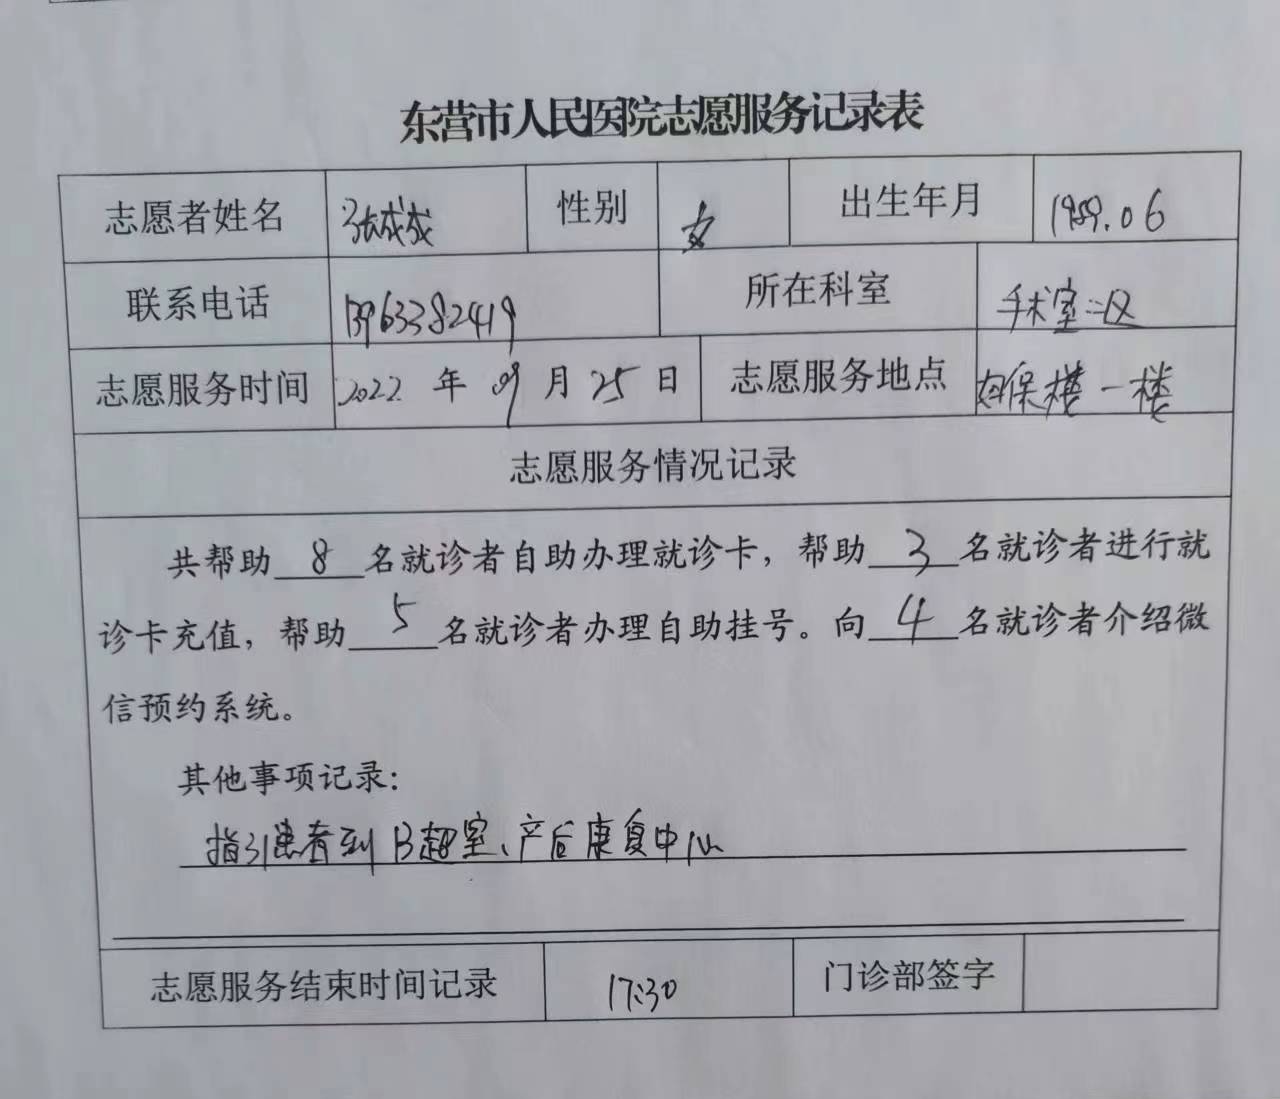 东营市人民医院志愿服务记录表
志愿者姓名 张成成 性别 女 出生年月 1989.06
联系电话 13963382419 所在科室 手术室二区
志愿服务时间 2022 年 09 月 25 日 志愿服务地点 妇保楼一楼
志愿服务情况记录
共帮助 8 名就诊者自助办理就诊卡，帮助 3 名就诊者进行就
诊卡充值，帮助 5 名就诊者办理自助挂号。向 4 名就诊者介绍微
信预约系统。
其他事项记录：
指引患者到B超室、产后康复中心
志愿服务结束时间记录 17:30 门诊部签字